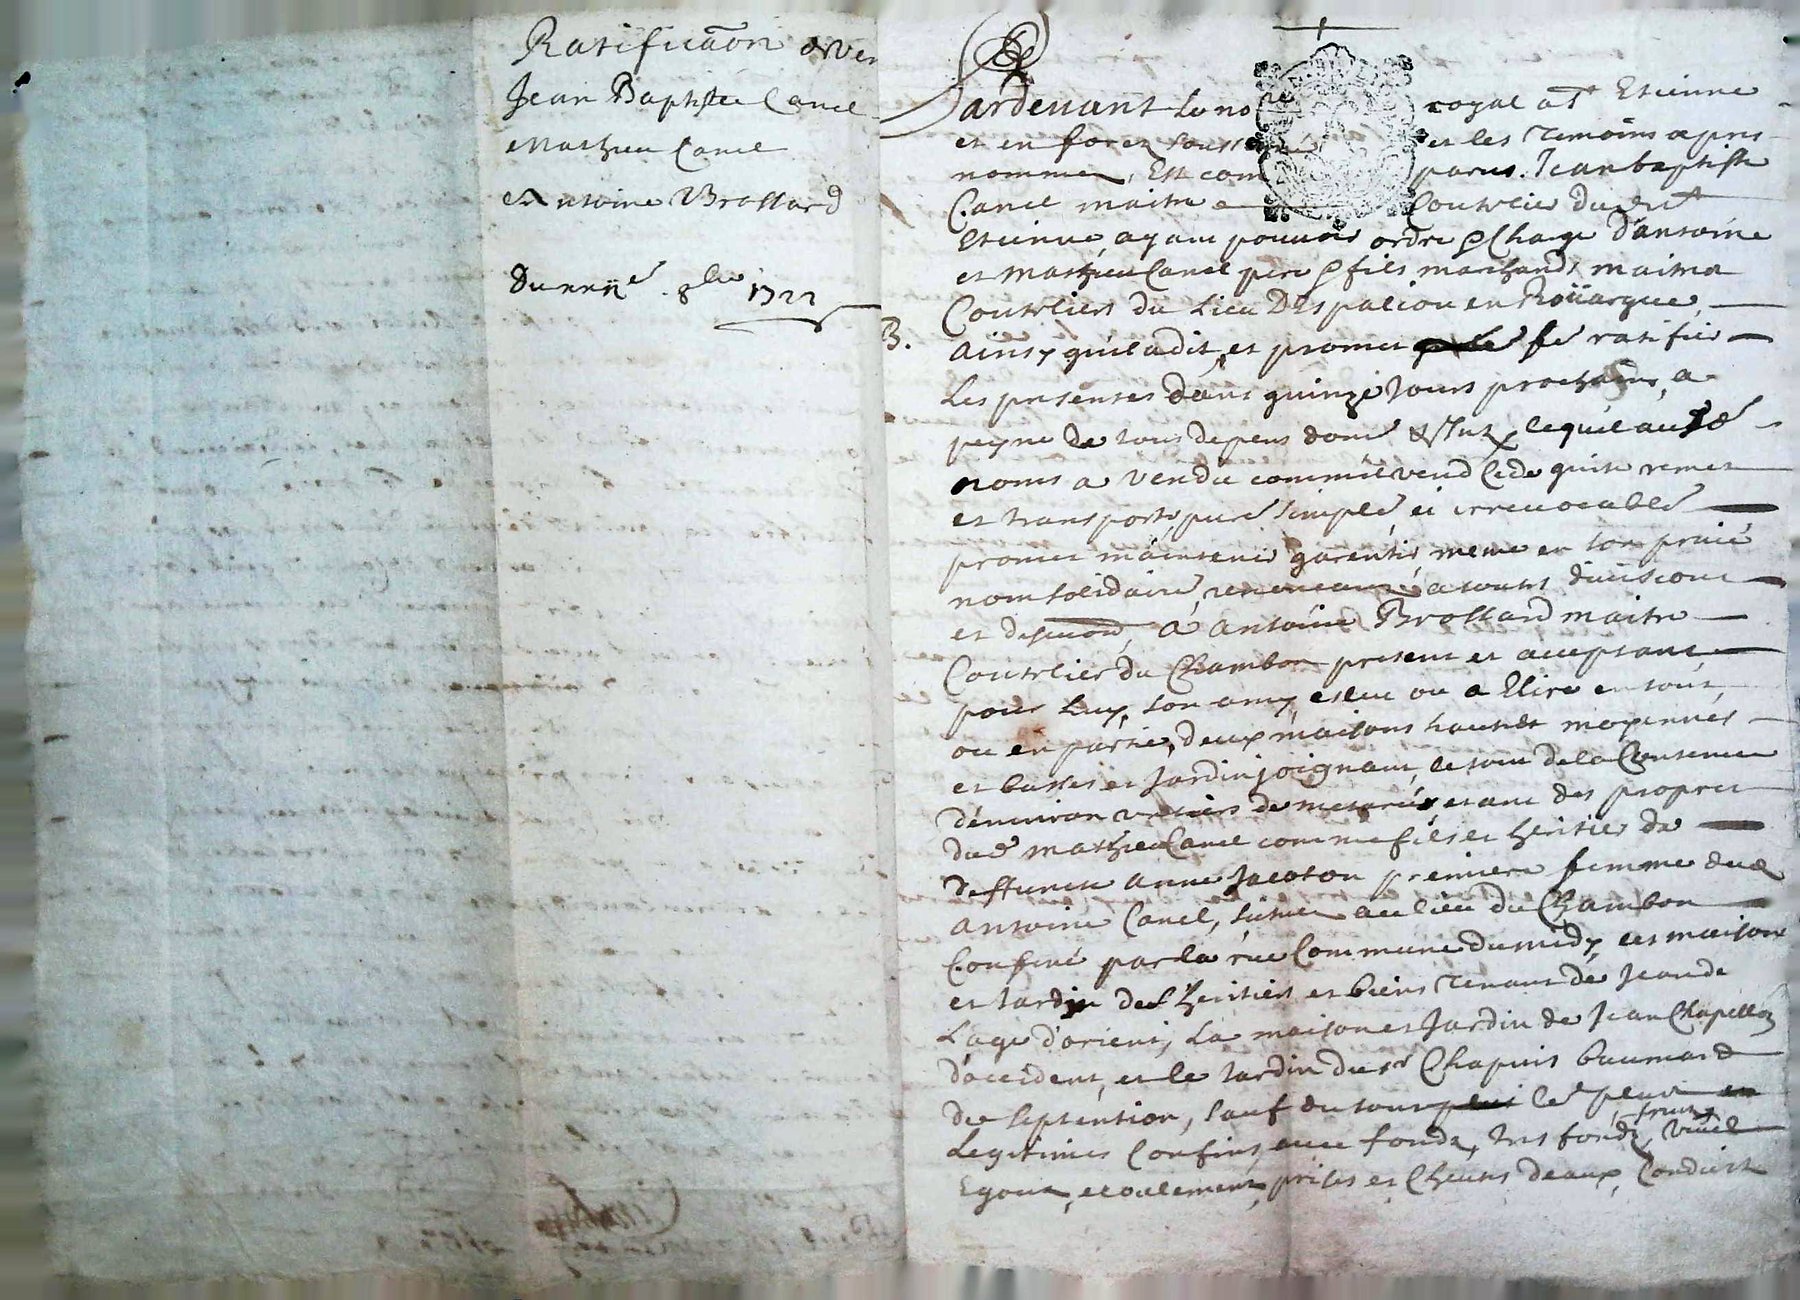 Ratification & Ven
Jean Baptiste Canel
Mathieu Canel
Antoine Brossard
Du xxiie 8bre 1722
Pardevant Le nore royal a St Etienne
et en forez souss né et les Temoins apres
nommez, Est com parus Jean baptiste
Canel maitre Coutelier dud St
Etienne, ayant pouvoir ordre & Charge d'antoine
et mathieu Canel pere & fils marchands maitres
Couteliers du Lieu DEspalion en Roüargue
B. ainsy qu'il a dit, et promet fe ratifier
Les presentes dans quinze Jours prochains, a
peyne de tous depens dome & Intx, lequel aud
noms a vendu comme il vend Cede quite remet
et transporte pure simple et irrevocable
promet maintenir garentir meme en son privé
nom solidaire, renoncant a toutes divisions
et a Antoine Brossard maitre
Coutelier du Chambon present et acceptant
pour Luy, son amy esleu ou a Elire en tout,
ou en partie, deux maisons hautes moyennes
et basses et Jardin joignant, le tout de la Contenue
d'environ de etant des propres
dud mathieu Canel comme fils et heritier de
deffuncte anne Jacoton premiere femme dud
Antoine Canel, situez au lieu du Chambon
Confiné par la rüe Commune du midy, les maison
et Jardin des heritiers et biens Tenant de Jean de
Lage d'orient, La maison et Jardin de Jean Chapellon
d'occident, et le Jardin du sr Chapuis
de septention, sauf du tout
Legitimes Confins, avec fonds, tres fonds, fruits,
Egout, ecoulement, prises et Cheutes deaux, Conduits